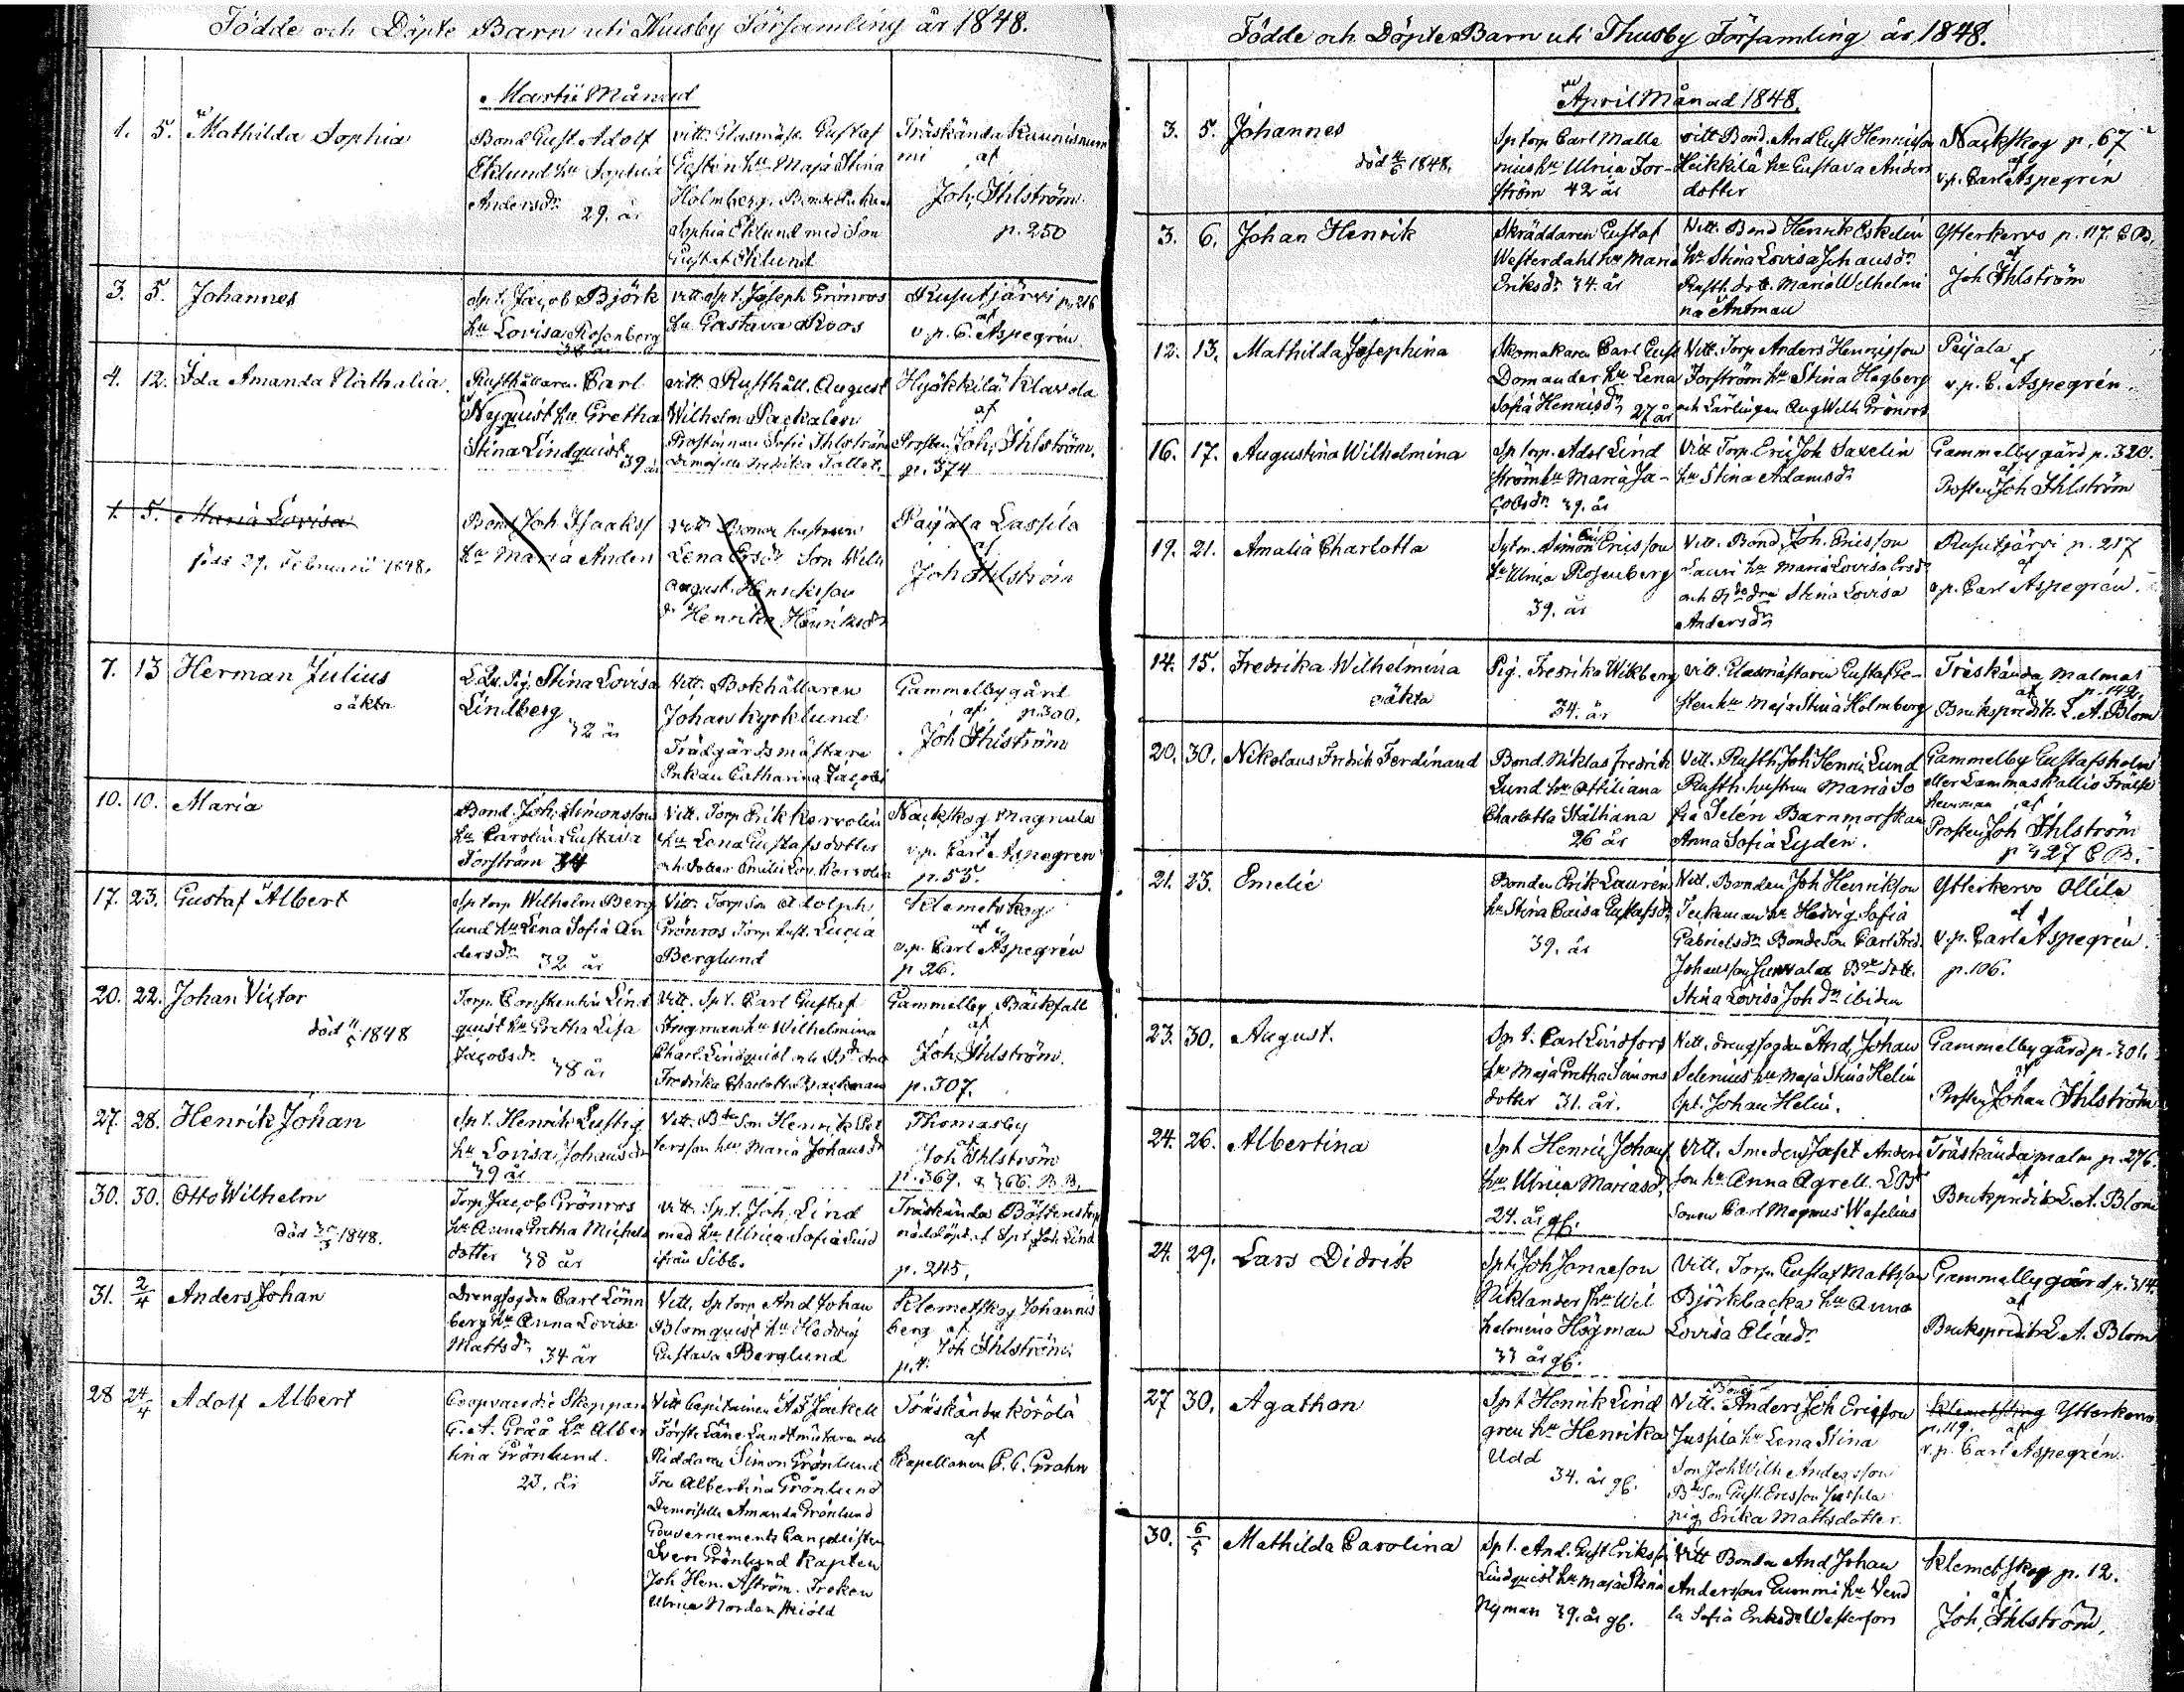 Födde och Döpte Barn uti Thusby Församling år 1848.
Martii Månad
1. 5. Mathilda Sophia
Bond Gust. Adolf
Eklund hu Sophia
Andersdr 29. år
vitt. Glasmäst. Gustaf
hu Maja Stina
Holmberg.
Sophia Eklund med Son
Gustaf Eklund
Träskända Kaunisnum
mi af
Joh. Ihlström
p. 250
3. 5. Johannes
Spt. Jacob Björk
hu Lovisa Rosenberg
vitt. Spt. Joseph Grönroos
hu Gustava Roos
Rusutjärvi p. 216
af
v. p. C. Aspegrén
4. 12. Ida Amanda Nathalia.
Rusthållaren Carl
Nyquist hu Gretha
Stina Lindquist 39 år
vitt. Rusthåll. August
Wilhelm Packalen
Prostinnan Sofie Ihlström
Demoiselle Fredrika Tallet.
Hyökkilä Klavda
af
Prosten Joh. Ihlström.
p. 374
1. 5. Maria Lovisa
född 29. Februarii 1848.
Bond Joh Isaaks
hu Maria Anders
vitt. Bonde hustrun
Lena Ersdr Son Wilh
August Henriksson
dr Henrika Henriksdr
Paijala Lassila
af
Joh Ihlström
7. 13 Herman Julius
oäkta
Pig. Stina Lovisa
Lindberg 32 år
Vitt. Bokhållaren
Johan Kyrklund
Trädgårdsmästare
Enkan Catharina Jacobs
Gammelbygård
af p. 300.
Joh Ihlström
10. 10. Maria
Bond. Joh. Simonsson
hu Carolin Gustava
Forström 34
Vitt. Torp Erik Kervolin
hu Lena Gustafsdotter
och dotter Emilie Lov. Kervolin
Nackskog Magnula
af
v. p. Carl Aspegrén
p. 53.
17. 23. Gustaf Albert
Sp torp Wilhelm Berg
lund hu Lena Sofia An
dersdr 32 år
Vitt. Torp Son Adolph
Grönroos Torp hust. Lucia
Berglund
Klemetskog
af
v. p. Carl Aspegrén
p 26.
20. 22. Johan Victor
död 11/5 1848
Torp. Constentin Lind
quist hu Gretha Lisa
Jacobsdr 38 år
Vitt. Spt. Carl Gustaf
hu Wilhelmina
Charl. Lindquist
Fredrika Charlotta Backman
Gammelby Bäckfall
af
Joh. Ihlström.
p. 307.
27. 28. Henrik Johan
Spt. Henrik Lustig
hu Lovisa Johansdr
39 år
Vitt. Bde Son Henrik Pet
tersson hu Maria Johansdr
Thomasby
af
Joh Ihlström
p. 369. & 366. B. B.
30. 30. Otto Wilhelm
död 30/3 1848.
Torp Jacob Grönroos
hu Anna Gretha Michels
dotter 38 år
vitt. Spt. Joh. Lind
med hu Ulrica Sofia Lind
ifrån Sibb.
Träskända
nöddöpt af Spt. Joh Lind
p. 245.
31. 2/4 Anders Johan
Drengfogden Carl Lönn
berg hu Anna Lovisa
Mattsdr 34 år
Vitt. Sp torp And Johan
Blomquist hu Hedvig
Gustava Berglund
Klemetskog Johannis
berg af
Joh Ihlström
p. 4.
28 24/4 Adolf Albert
Coopvaerdie Skeppare
G. A. Gråå hu Alber
tina Grönlund.
23. år
Vitt Capitainen Jackell
Förste Läne Landtmätaren och
Riddaren Simon Grönlund
Fru Albertina Grönlund
Demoiselle Amanda Grönlund
Gouvernements Cancellisten
Sven Grönlund Kapten
Joh Hen. Åström. Fröken
Ulrica Nordenskiöld
Träskända Körölä
af
Kapellanen C. C. Grahn
Födde och Döpte Barn uti Thusby Församling år 1848.
April Månad 1848.
3. 5. Johannes
död 4/6 1848.
Sp torp Carl Malle
nius hu Ulrica For-
ström 42 år
vitt Bond. And Gust Henricson
Heikkilä hu Gustava Anders
dotter
Nackskog p. 67
af
v. p. Carl Aspegrén
3. 6. Johan Henrik
Skräddaren Gustaf
Westerdahl hu Maria
Eriksdr 34. år
Vitt. Bond Henrik Eskelin
hu Stina Lovisa Johansdr
Rusth. dott. Maria Wilhelmi
na Antman
Ytterkervo p. 117. C B.
af
Joh Ihlström
12. 13. Mathilda Josephina
Skomakaren Carl Gust
Domander hu Lena
Sofia Henricsdr 27 år
Vitt. Torp Anders Henricsson
Forström hu Stina Hagberg
och Lärlingen Aug Wilh Grönroos
Paijala
af
v. p. C. Aspegrén.
16. 17. Augustina Wilhelmina
Sp torp. Adol Lind
ström hu Maria Ja-
cobsdr 39. år
Vitt Torp Eric Joh Saxelin
hu Stina Adamsdr
Gammelbygård p. 320.
af
Prosten Joh Ihlström
19. 21. Amalia Charlotta
Sytm. Simon Ericsson
hu Ulrica Rosenberg
39. år
Vitt. Bond. Joh. Ericsson
Lauri hu Maria Lovisa Ersdr
och Stina Lovisa
Andersdr
Rusutjärvi p. 217
af
v. p. Carl Aspegrén.
14. 15. Fredrika Wilhelmina
oäkta
Pig. Fredrika Wikberg
34. år
vitt. Glasmästaren Gustaf Ge-
sten hu Maja Stina Holmberg
Träskända Malmas
af p. 142.
Brukspredik. L. A. Blom
20. 30. Nikolaus Fredrik Ferdinand
Bond. Niklas Fredrik
Lund hu Ottiliana
Charlotta Ståltiana
26 år
Vitt. Rusth Joh Henric Lund
Rusth. hustrun Maria So
fia Selén Barnmorskan
Anna Sofia Lydén.
Gammelby Gustafsholm
eller Lammaskallio Frälse
hemman af
Prosten Joh Ihlström
p 427 C B.
21. 23. Emelie
Bonden Erik Laurén
hu Stina Caisa Gustafsdr
39. år
Vitt. Bonden Joh Henrikson
hu Hedvig Sofia
Gabrielsdr Bonde Son Carl Fred.
Johansson
Stina Lovisa Johdr ibidem
Ytterkervo Ollila
af
v. p. Carl Aspegrén.
p. 106.
23. 30. August.
Spt. Carl Lindfors
hu Maja Gretha Simons
dotter 31. år.
Vitt. drengfogden And. Johan
Selenius hu Maja Stina Helin
Spt. Johan Helin.
Gammelbygård p. 301.
af
Prosten Johan Ihlström
24. 26. Albertina
Spt Henric Johans
hu Ulrica Mariasd.
24. år gf.
Vitt. Smeden Josef Anders
son hu Anna Agrell.
Sonen Carl Magnus Waselius
Träskända malm p. 276.
af
Brukspredik L. A. Blom
24. 29. Lars Didrik
Spt. Joh Jonaeson
Niklander hu Wil
helmina Högman
33 år gf.
Vitt. Torp. Gustaf Mattsson
Björkbacka hu Anna
Lovisa Eliaedr
Gammelbygård p. 314.
af
Brukspredik L. A. Blom
27 30. Agathon
Spt Henrik Lind
gren hu Henrika
Udd
34. år gf.
Bond
Vitt. Anders Joh Ericsson
Jussila hu Lena Stina
Son Joh Wilh Andersson
Bde Son Gust. Ericsson Jussila
pig Erika Mattsdotter.
Ytterkervo
p. 119. af
v. p. Carl Aspegrén.
30. 6/5 Mathilda Carolina
Spt. And. Gust Eriksson
Lindquist hu Maja Stina
Nyman 39. år gf.
Vitt Bonden And Johan
Andersson Gummi hu Vend
la Sofia Eriksdr Westerfors
Klemetskog p. 12.
af
Joh. Ihlström.